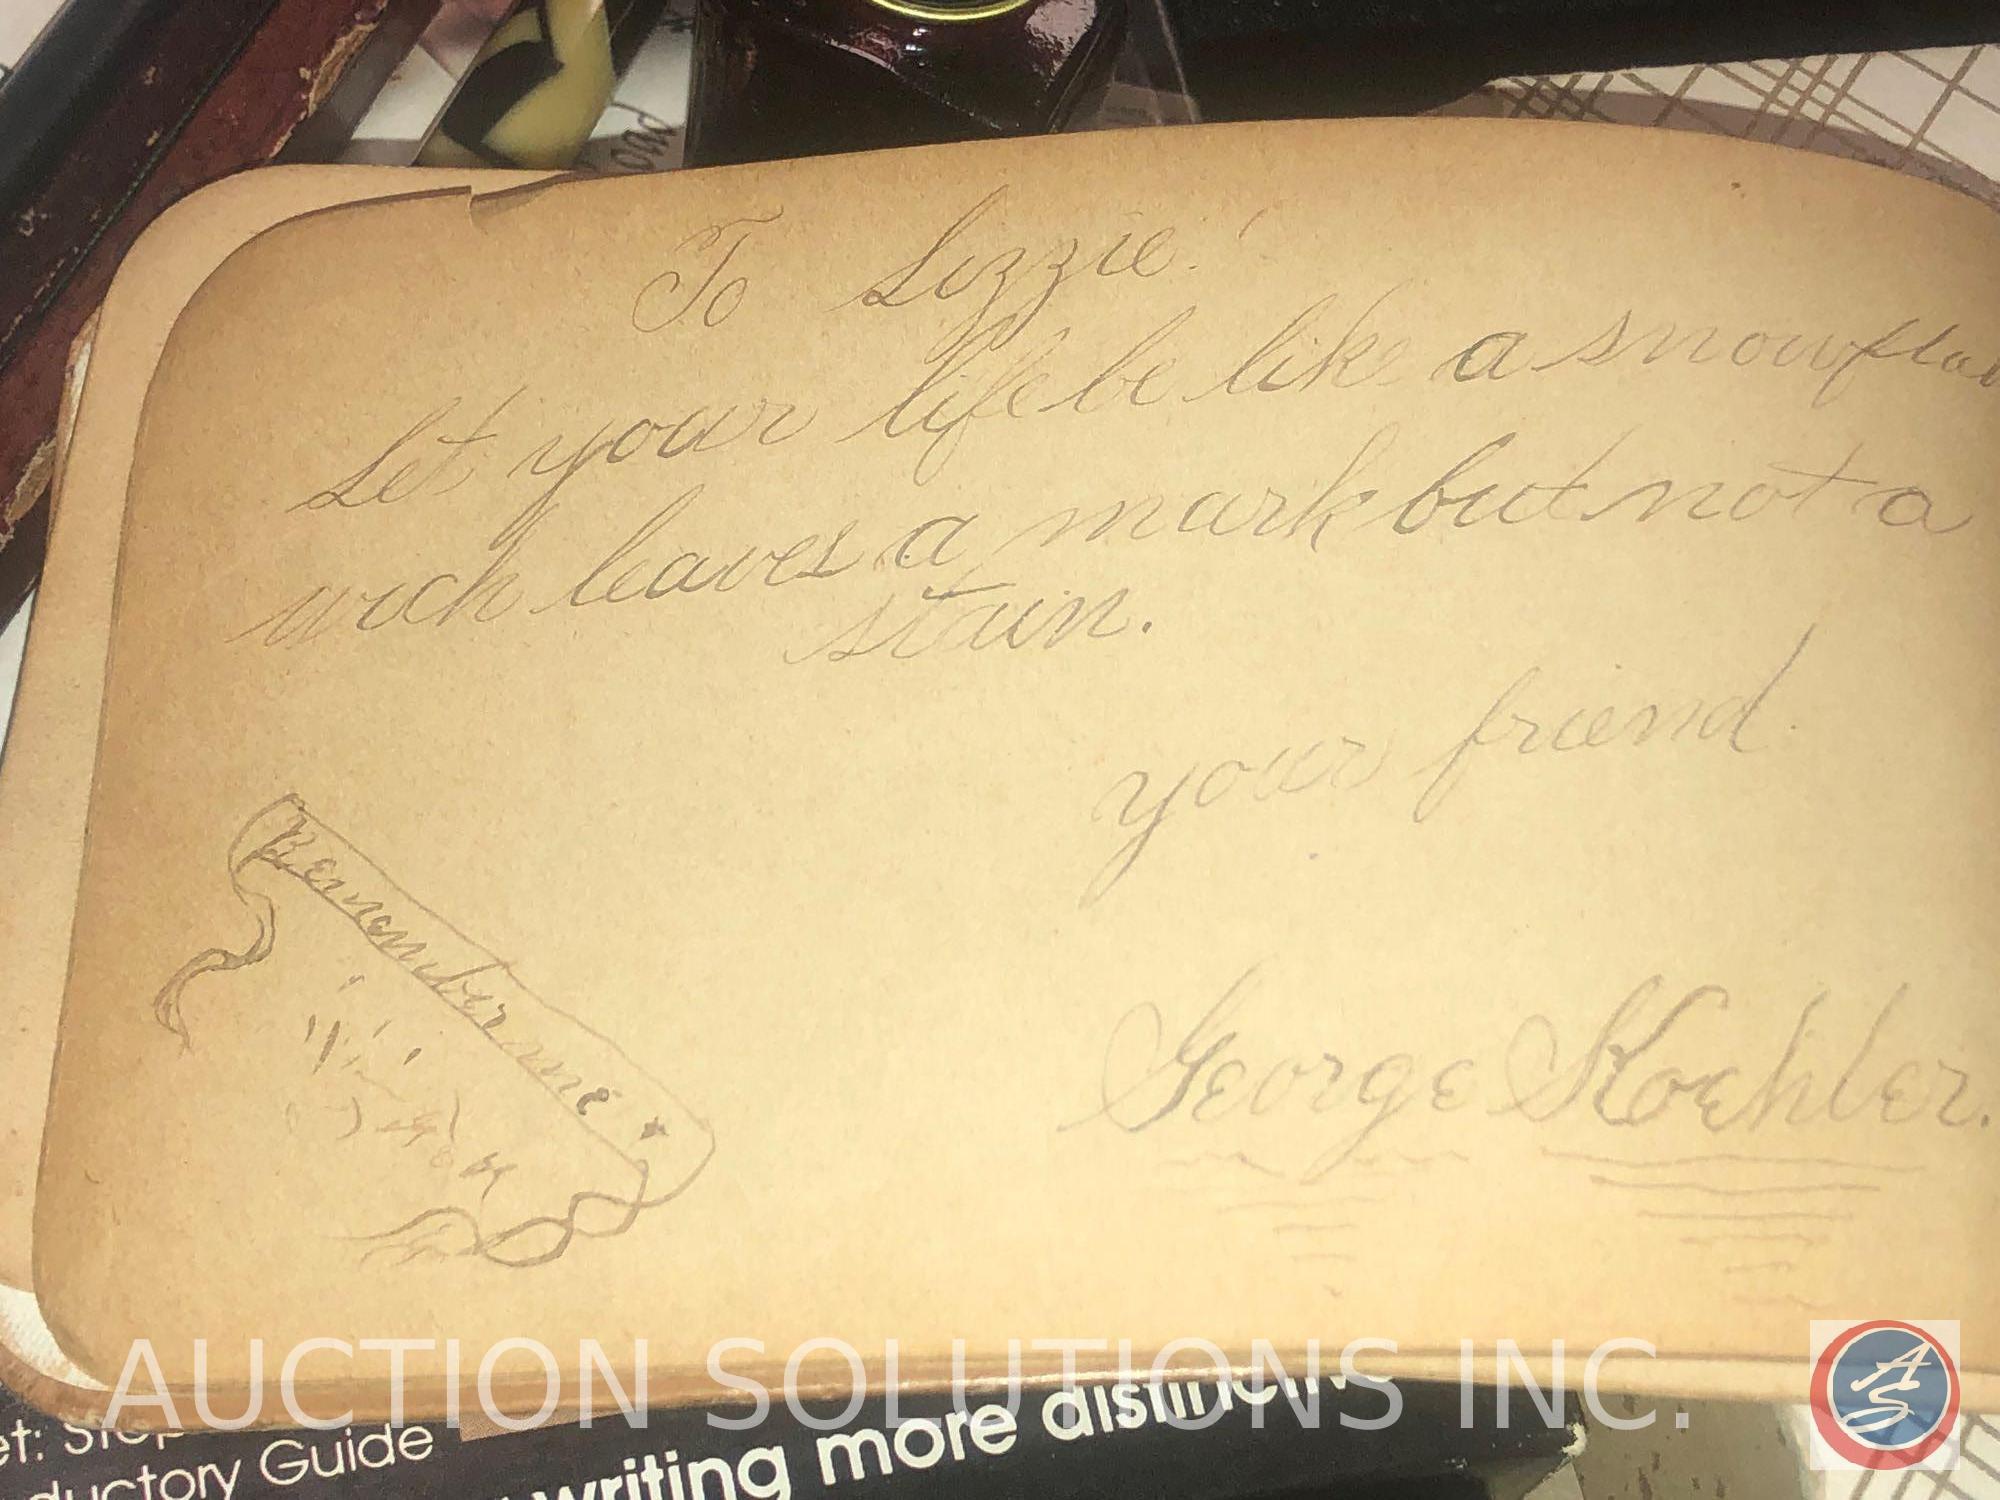 To Lizzie!
Let your life be like a snowflak
wich leaves a mark but not a
stain.
your friend
George Koehler.
Remember me
AUCTION SOLUTIONS INC.
AS
et: Step
ductory Guide
writing more distinctive